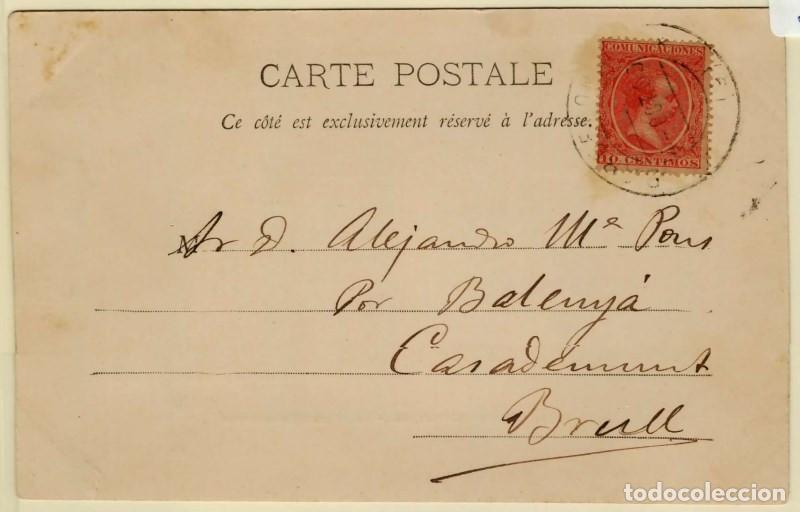 CARTE POSTALE
Ce côté est exclusivement réservé à l'adresse.
COMUNICACIONES
10 CENTIMOS
Sr D. Alejandro Mª Pons
Por Balenyá
Casademunt
Brull
todocoleccion